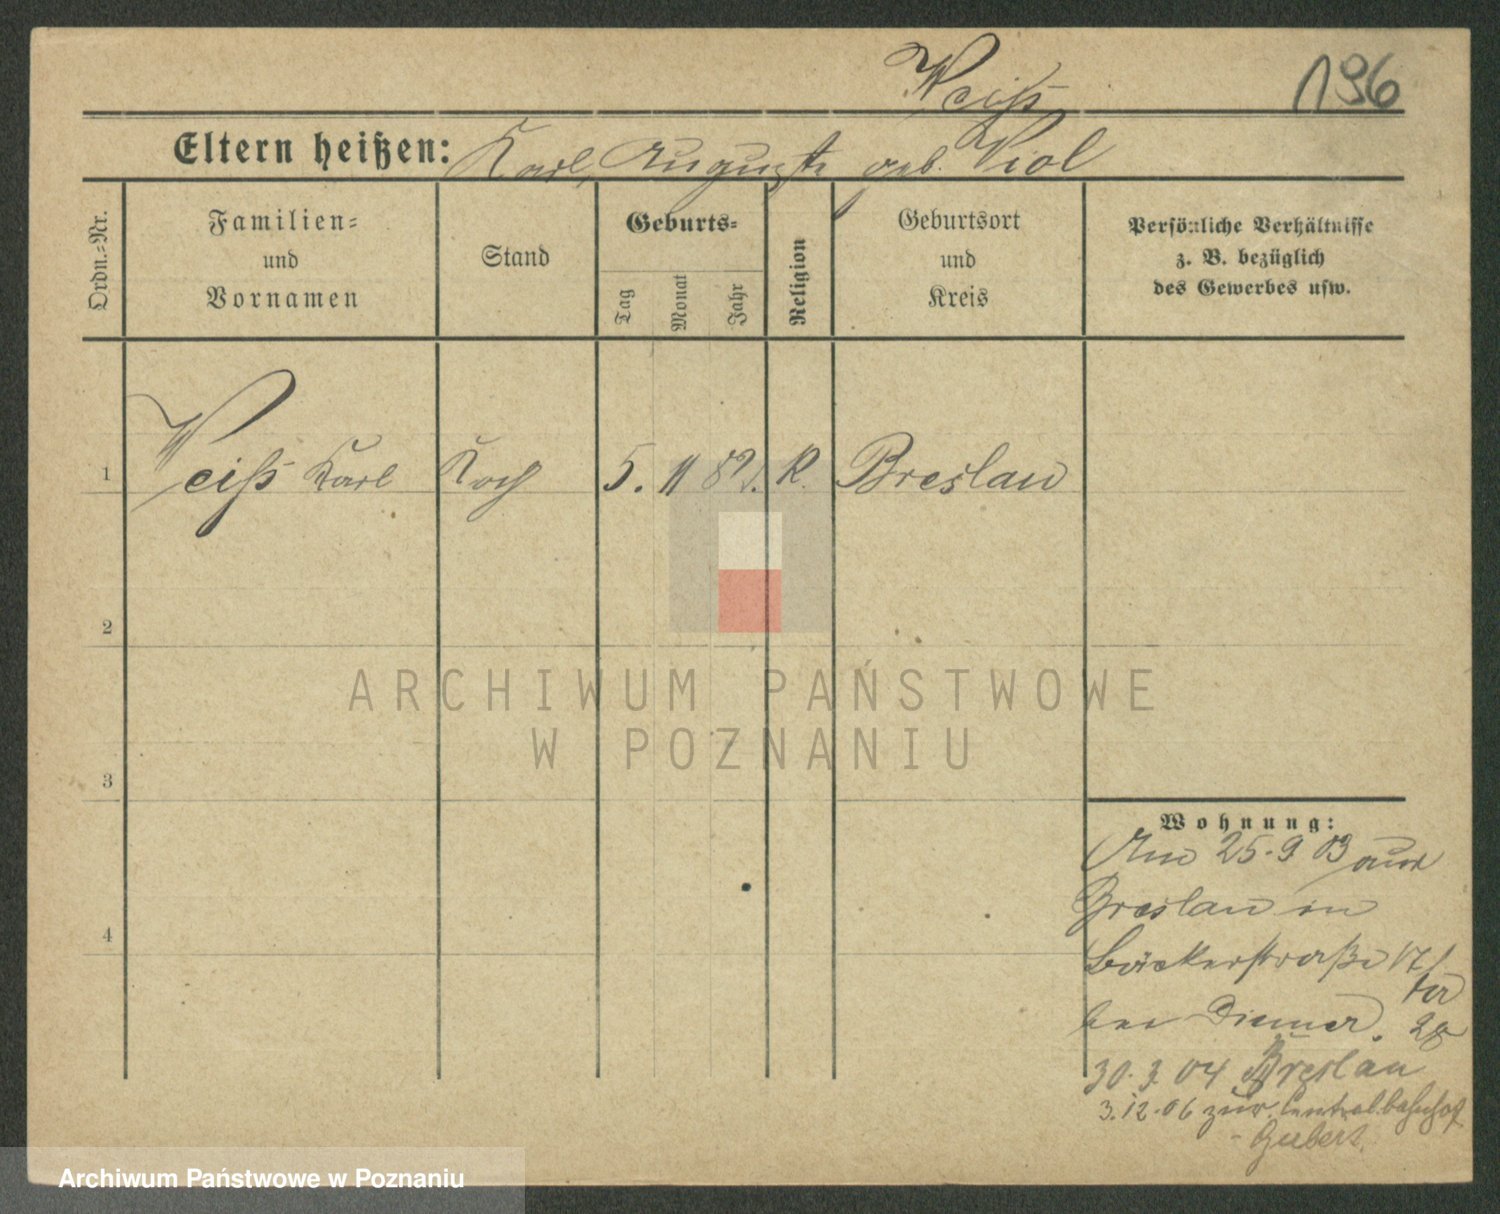 Weiß
196
Eltern heißen: Karl, Auguste geb. Viol
Ordn.-Nr.
Familien-
und
Vornamen
Stand
Geburts-
Tag
Monat
Jahr
Religion
Geburtsort
und
Kreis
Persönliche Verhältnisse
z. B. bezüglich
des Gewerbes usw.
1 Weiß Karl Koch 5. 11 82. K. Breslau
2
3
4
Wohnung:
Am 25.9 03 aus
Breslau in
Bäckerstraße 17/
bei Diener.
30.3.04 Breslau
3.12.06 zur. Centralbahnhof
ARCHIWUM PAŃSTWOWE
W POZNANIU
Archiwum Państwowe w Poznaniu